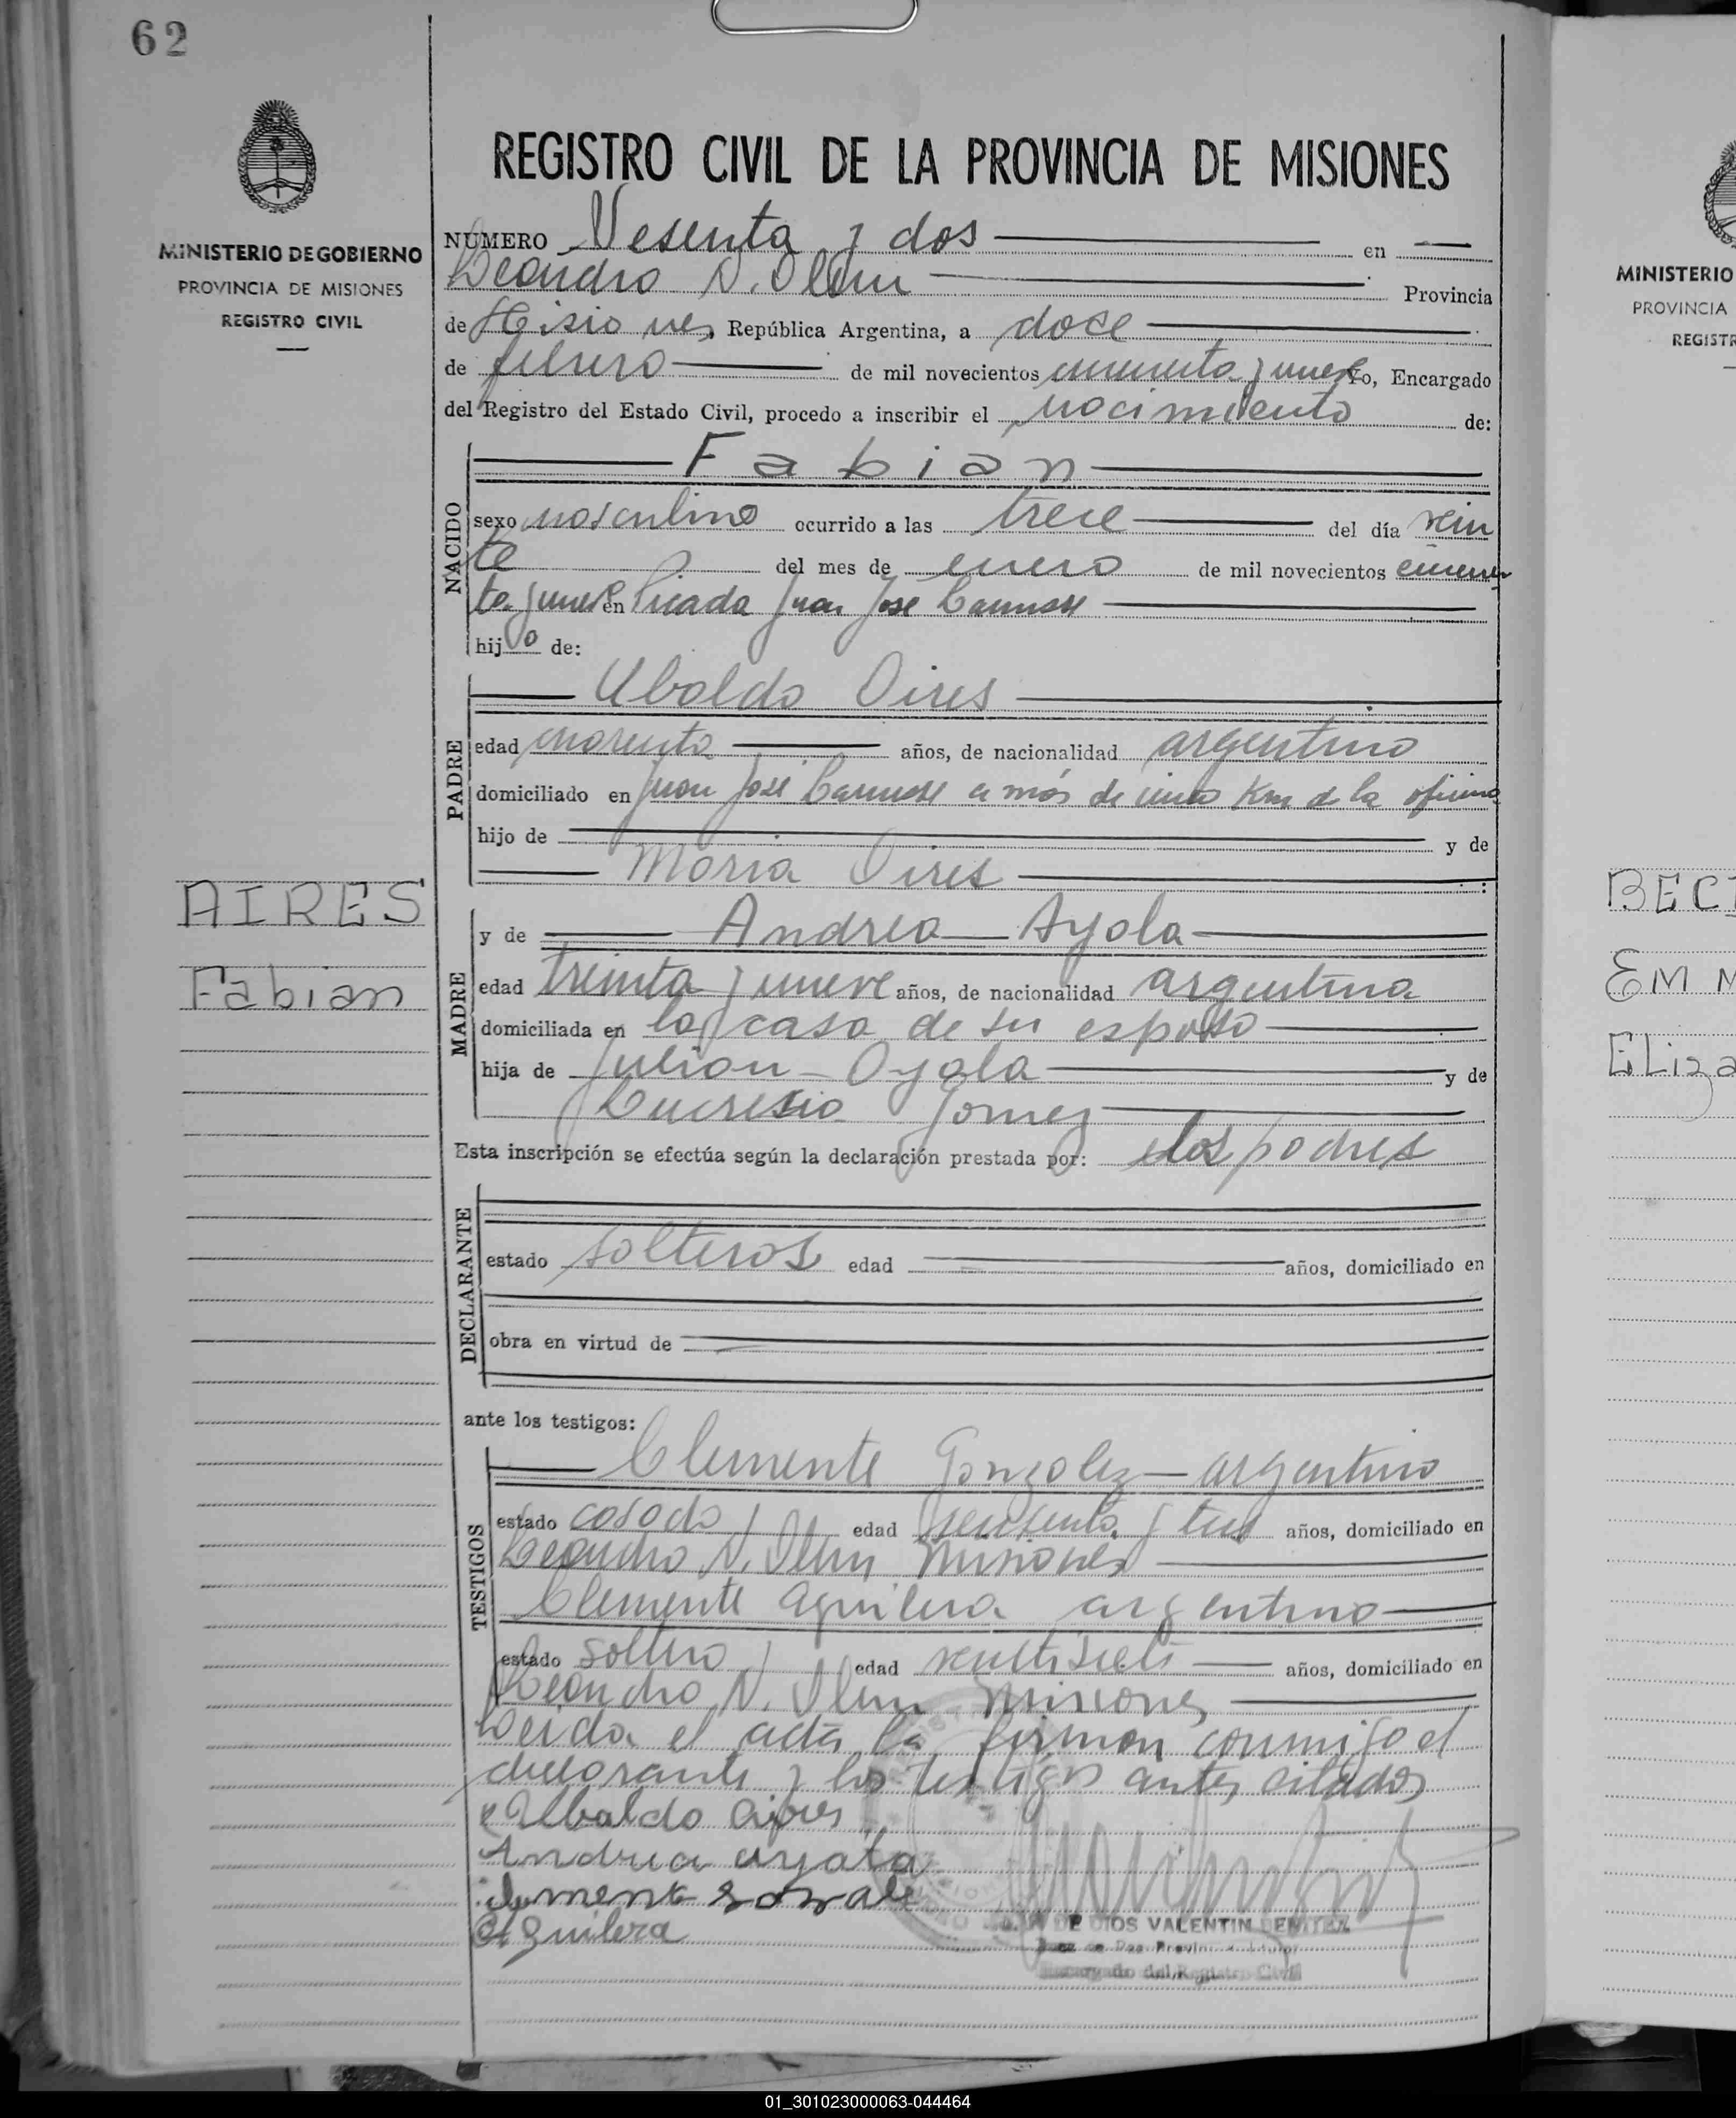 62
MINISTERIO DE GOBIERNO
PROVINCIA DE MISIONES
REGISTRO CIVIL
AIRES
Fabian
REGISTRO CIVIL DE LA PROVINCIA DE MISIONES
NUMERO Sesenta y dos en
Leandro N. Alem Provincia
de Misiones, República Argentina, a doce
de febrero de mil novecientos cincuenta y nueve Yo, Encargado
del Registro del Estado Civil, procedo a inscribir el nacimiento de:
NACIDO
Fabian
sexo masculino ocurrido a las trece del día vein
te del mes de enero de mil novecientos cincuen
ta y nueve en Picada Juan José
hijo de:
PADRE
Ubaldo Aires
edad cuarenta años, de nacionalidad argentino
domiciliado en Juan José a más de cinco Km de la oficina
hijo de y de
Maria Aires
MADRE
y de Andrea Ayala
edad treinta y nueve años, de nacionalidad argentina
domiciliada en la casa de su esposo
hija de Julian Ayala y de
Lucresia Gomez
Esta inscripción se efectúa según la declaración prestada por: los padres
DECLARANTE
estado solteros edad años, domiciliado en
obra en virtud de
ante los testigos:
TESTIGOS
Clemente Gonzalez argentino
estado casado edad y tres años, domiciliado en
Leandro N. Alem Misiones
Clemente Aguilera argentino
estado soltero edad veintisiete años, domiciliado en
Leandro N. Alem Misiones
Leida el acta la firman conmigo el
declarante y los testigos antes citados
Ubaldo Aires
Andrea ayala
Aguilera
DE DIOS VALENTIN BENITEZ
Juez de Paz
Encargado del Registro Civil
MINISTERIO
PROVINCIA
REGISTR
BEC
EM
Eliza
01_301023000063-044464